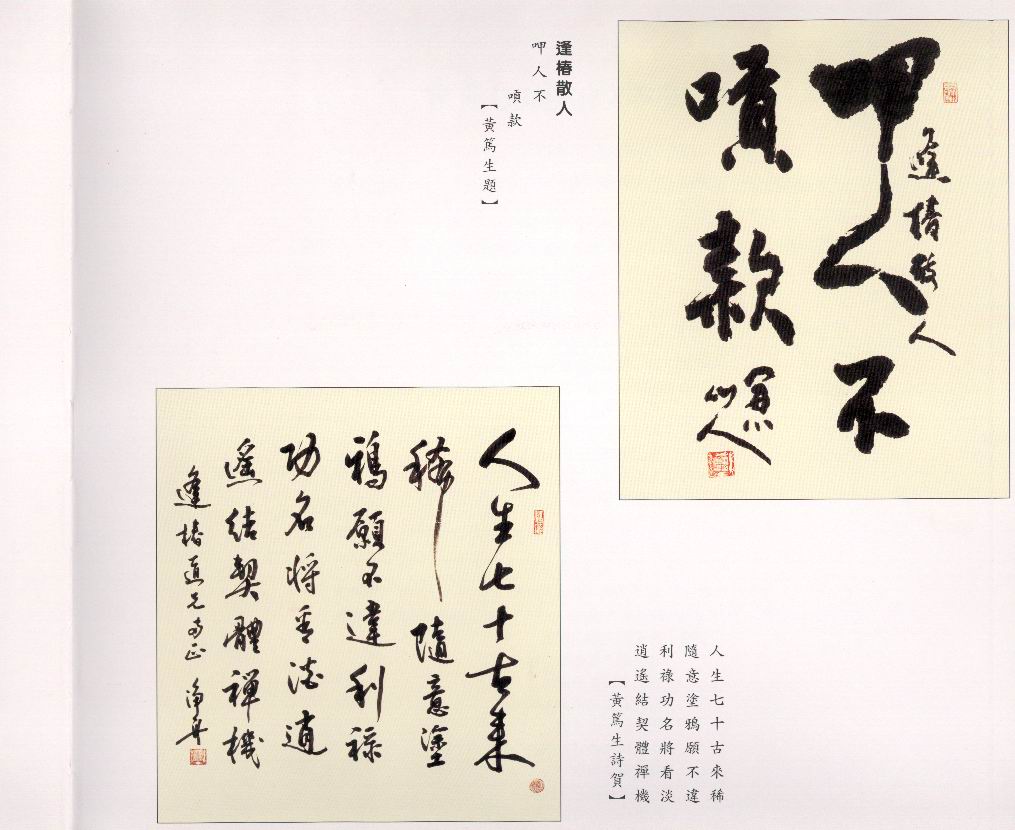 逢椿散人
呷人不
噴款
逢椿散人
呷人不
噴款
【黃篤生題】
人生七十古來
稀隨意塗
鴉願不違利祿
功名將看淡逍
遙結契體禪機
逢椿道兄
人生七十古來稀
隨意塗鴉願不違
利祿功名將看淡
逍遙結契體禪機
【黃篤生詩賀】